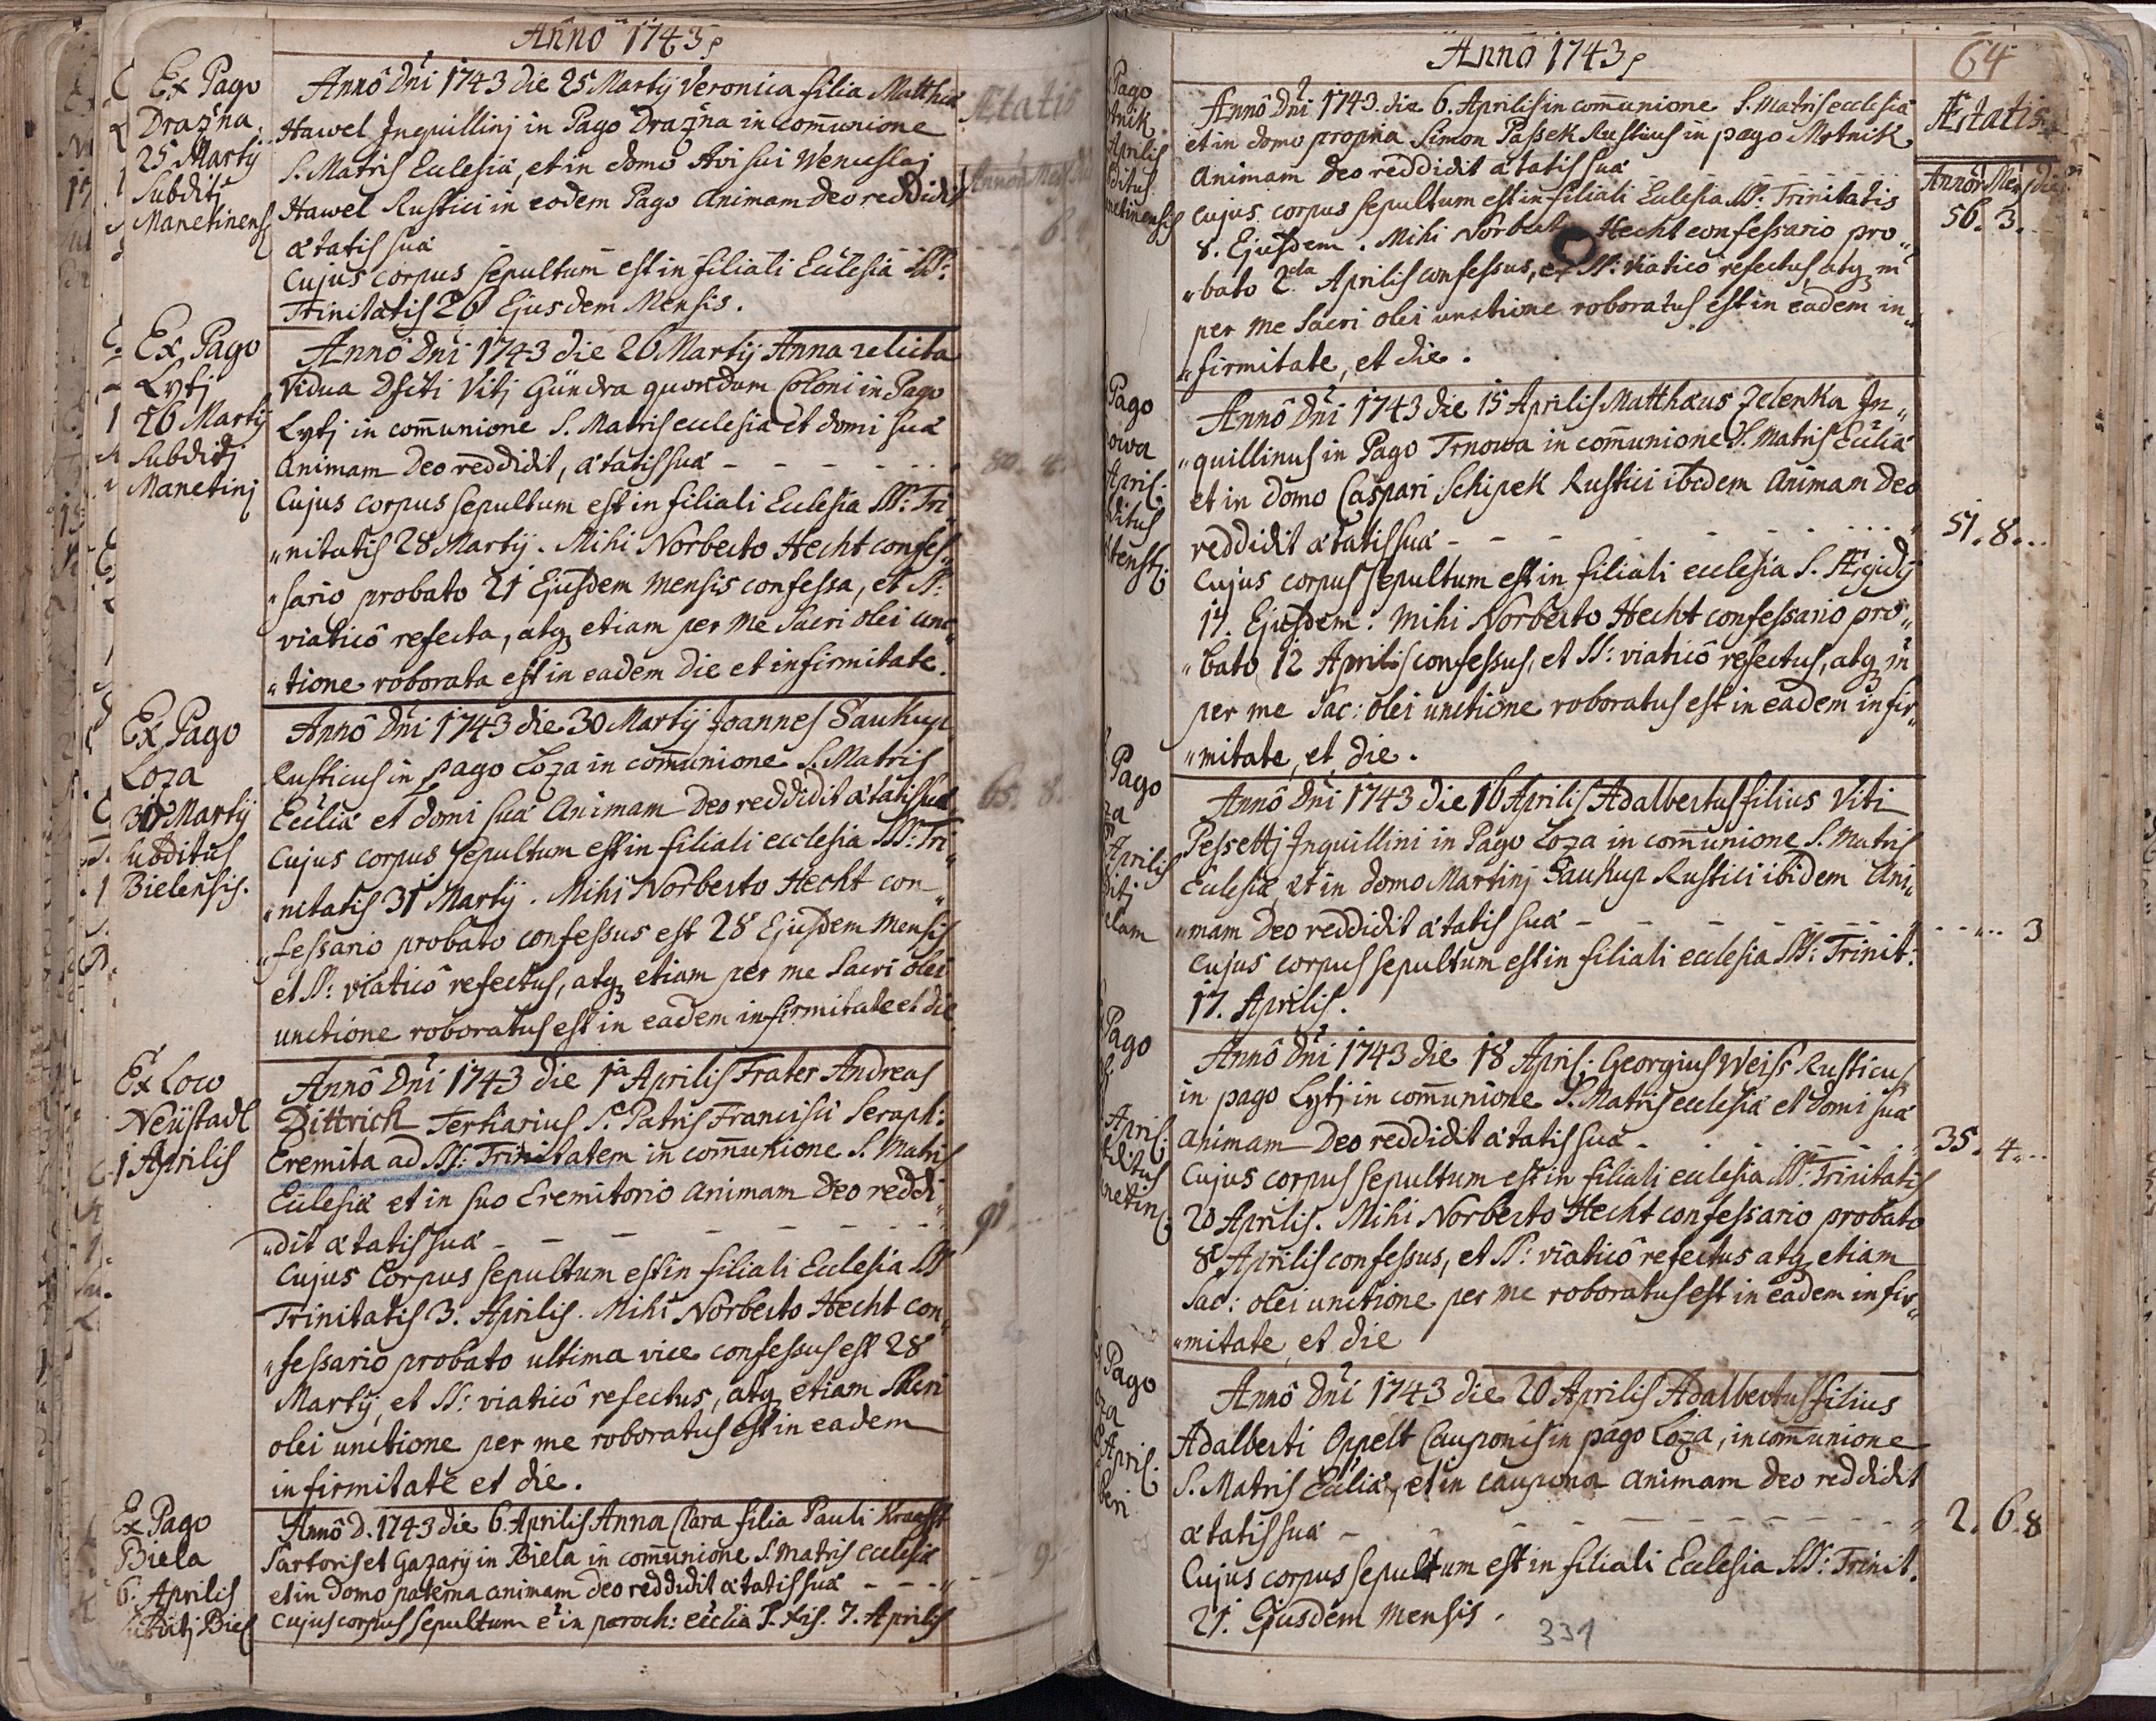 Anno 1743
Ex Pago
Dražna
25 Martij
Subditj
Manetinens
Annô Dni 1743 die 25 Martij Veronica filia Matthiæ
Hawel Inquillinj in Pago Dražna in com̄unione
S. Matris Ecclesiæ, et in domo Avi sui Wenceslaj
Hawel Rustici in eodem Pago Animam Deo reddidit
ætatis suæ
Cujus corpus sepultum est in filiali Ecclesia SS:
Trinitatis 26 Ejusdem Mensis.
Ætatis
6.
Ex Pago
Lytj
26 Martij
Subditj
Manetinj
Annô Dni 1743 die 26 Martij Anna relicta
Vidua Dfcti Vitj Gündra quondam Coloni in Pago
Lytj in com̄unione S. Matris ecclesiæ et domi suæ
Animam Deo reddidit, ætatis suæ - - - - 80. 8.
Cujus corpus sepultum est in filiali Ecclesia SS: Tri
„nitatis 28 Martij. Mihi Norberto Hecht confes„
„sario probato 21 Ejusdem mensis confessa, et SS:
viaticô refecta, atq etiam per me Sacri olei unc„
„tione roborata est in eadem die et infirmitate.
Ex Pago
Loza
30 Martij
Subditus
Bielensis.
Annô Dni 1743 die 30 Martij Joannes Saukup
Rusticus in Pago Loza in com̄unione S. Matris
Eccliæ et domi suæ Animam Deo reddidit ætatis suæ 65. 8.
Cujus corpus sepultum est in filiali ecclesia SS: Tri„
„nitatis 31 Martij. Mihi Norberto Hecht con„
„fessario probato confessus est 28 Ejusdem Mensis
et SS: viaticô refectus, atq etiam per me Sacri olei
unctione roboratus est in eadem infirmitate et die.
Ex Loco
Neüstadl
1 Aprilis
Annô Dni 1743 die 1a Aprilis Frater Andreas
Dittrich Tertiarius S. Patris Francisci Seraph:
Eremita ad SS: Trinitatem in com̄unione S. Matris
Ecclesiæ et in suo Eremitorio animam Deo reddi„
„dit ætatis suæ - - - - - - 91.
Cujus Corpus sepultum est in filiali Ecclesia SS
Trinitatis 3. Aprilis. Mihi Norberto Hecht con„
„fessario probato ultima vice confessus est 28
Martij, et SS: viaticô refectus, atq etiam Sacri
olei unctione per me roboratus est in eadem
infirmitate et die.
Ex Pago
Biela
6. Aprilis
Subditj Biel
Annô D. 1743 die 6. Aprilis Anna Clara filia Pauli
Sartoris et Gazarij in Biela in com̄unione S. Matris ecclesiæ
et in domo paterna animam Deo reddidit ætatis suæ - - - 9.
Cujus corpus sepultum e in paroch: ecclia 7. Aprilis
Anno 1743
64
Ætatis
Annor Mens Dies
Pago
tnik
Aprilis
ditus
netinensis
Annô Dni 1743. die 6. Aprilis in com̄unione S. Matris ecclesiæ
et in domo propria Simon Passek Rusticus in pago Mrtnik
Animam Deo reddidit ætatis suæ 56. 3.
Cujus corpus sepultum est in filiali Ecclesia SS: Trinitatis
8. Ejusdem. Mihi Norberto Hecht confessario pro„
„bato 2da Aprilis confessus, et SS: viaticô refectus, atq in
per me Sacri olei unctione roboratus est in eadem in„
„firmitate, et die.
Pago
owa
April:
ditus
tens:
Annô Dni 1743 die 15 Aprilis Matthæus Zelenka In„
„quillinus in Pago Trnowa in com̄unione S. Matris Eccliæ
et in domo Caspari Schipek Rustici ibidem Animam Deo
reddidit ætatis suæ - - - - - 51. 8...
Cujus corpus sepultum est in filiali ecclesia S. Ægidij
17. Ejusdem. Mihi Norberto Hecht confessario pro„
„bato 12 Aprilis confessus, et SS: viaticô refectus, atq in
per me Sac: olei unctione roboratus est in eadem infir„
„mitate, et die.
Pago
za
Aprilis
ditj
elam
Annô Dni 1743 die 16 Aprilis Adalbertus filius Viti
Pessettj Inquillini in Pago Loza in com̄unione S. Matris
Ecclesiæ, et in domo Martinj Saukup Rustici ibidem Ani„
„mam Deo reddidit ætatis suæ - - - - - - - 3
Cujus corpus sepultum est in filiali ecclesia SS: Trinit:
17. Aprilis.
Pago
April:
ditus
netin
Annô Dni 1743 die 18 April: Georgius Weiss Rusticus
in pago Lytj in com̄unione S. Matris ecclesiæ et domi suæ
Animam Deo reddidit ætatis suæ - - - - 35. 4...
Cujus corpus sepultum est in filiali ecclesia SS: Trinitatis
20 Aprilis. Mihi Norberto Hecht confessario probato
8 Aprilis confessus, et SS: viaticô refectus atq etiam
Sac: olei unctione per me roboratus est in eadem infir„
„mitate et die
Pago
za
April:
beri
Annô Dni 1743 die 20 Aprilis Adalbertus filius
Adalberti Oppelt Cauponis in pago Loza, in com̄unione
S. Matris Eccliæ, et in caupona animam Deo reddidit
ætatis suæ - - - - - - 2. 6. 8
Cujus corpus sepultum est in filiali Ecclesia SS: Trinit.
21. Ejusdem Mensis.
331